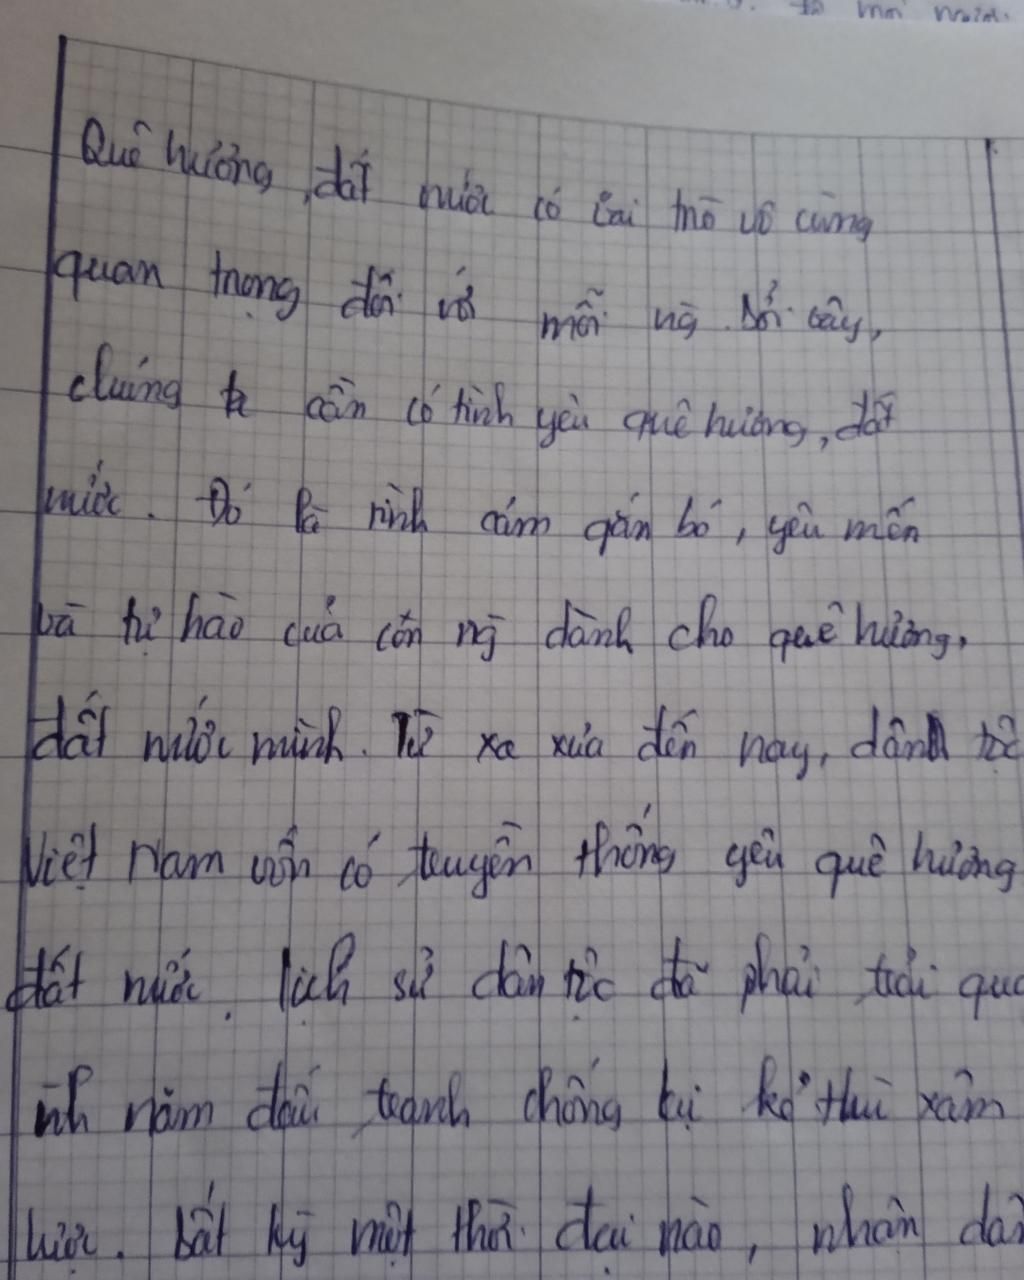 mọi người.
Quê hương, đất nước có vai trò vô cùng
quan trọng đối với mỗi ng. Bởi vậy,
chúng ta cần có tình yêu quê hương, đất
nước. Đó là tình cảm gắn bó, yêu mến
và tự hào của con ng dành cho quê hương,
đất nước mình. Từ xa xưa đến nay, dân tộc
Việt Nam vốn có truyền thống yêu quê hương
đất nước. lịch sử dân tộc đã phải trải qua
nh năm đấu tranh chống lại kẻ thù xâm
lược. bất kỳ một thời đại nào, nhân dân